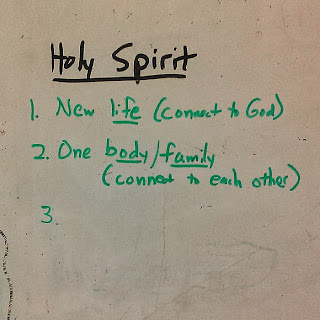 Holy Spirit
1. New life (connect to God)
2. One body/family
(connect to each other)
3.